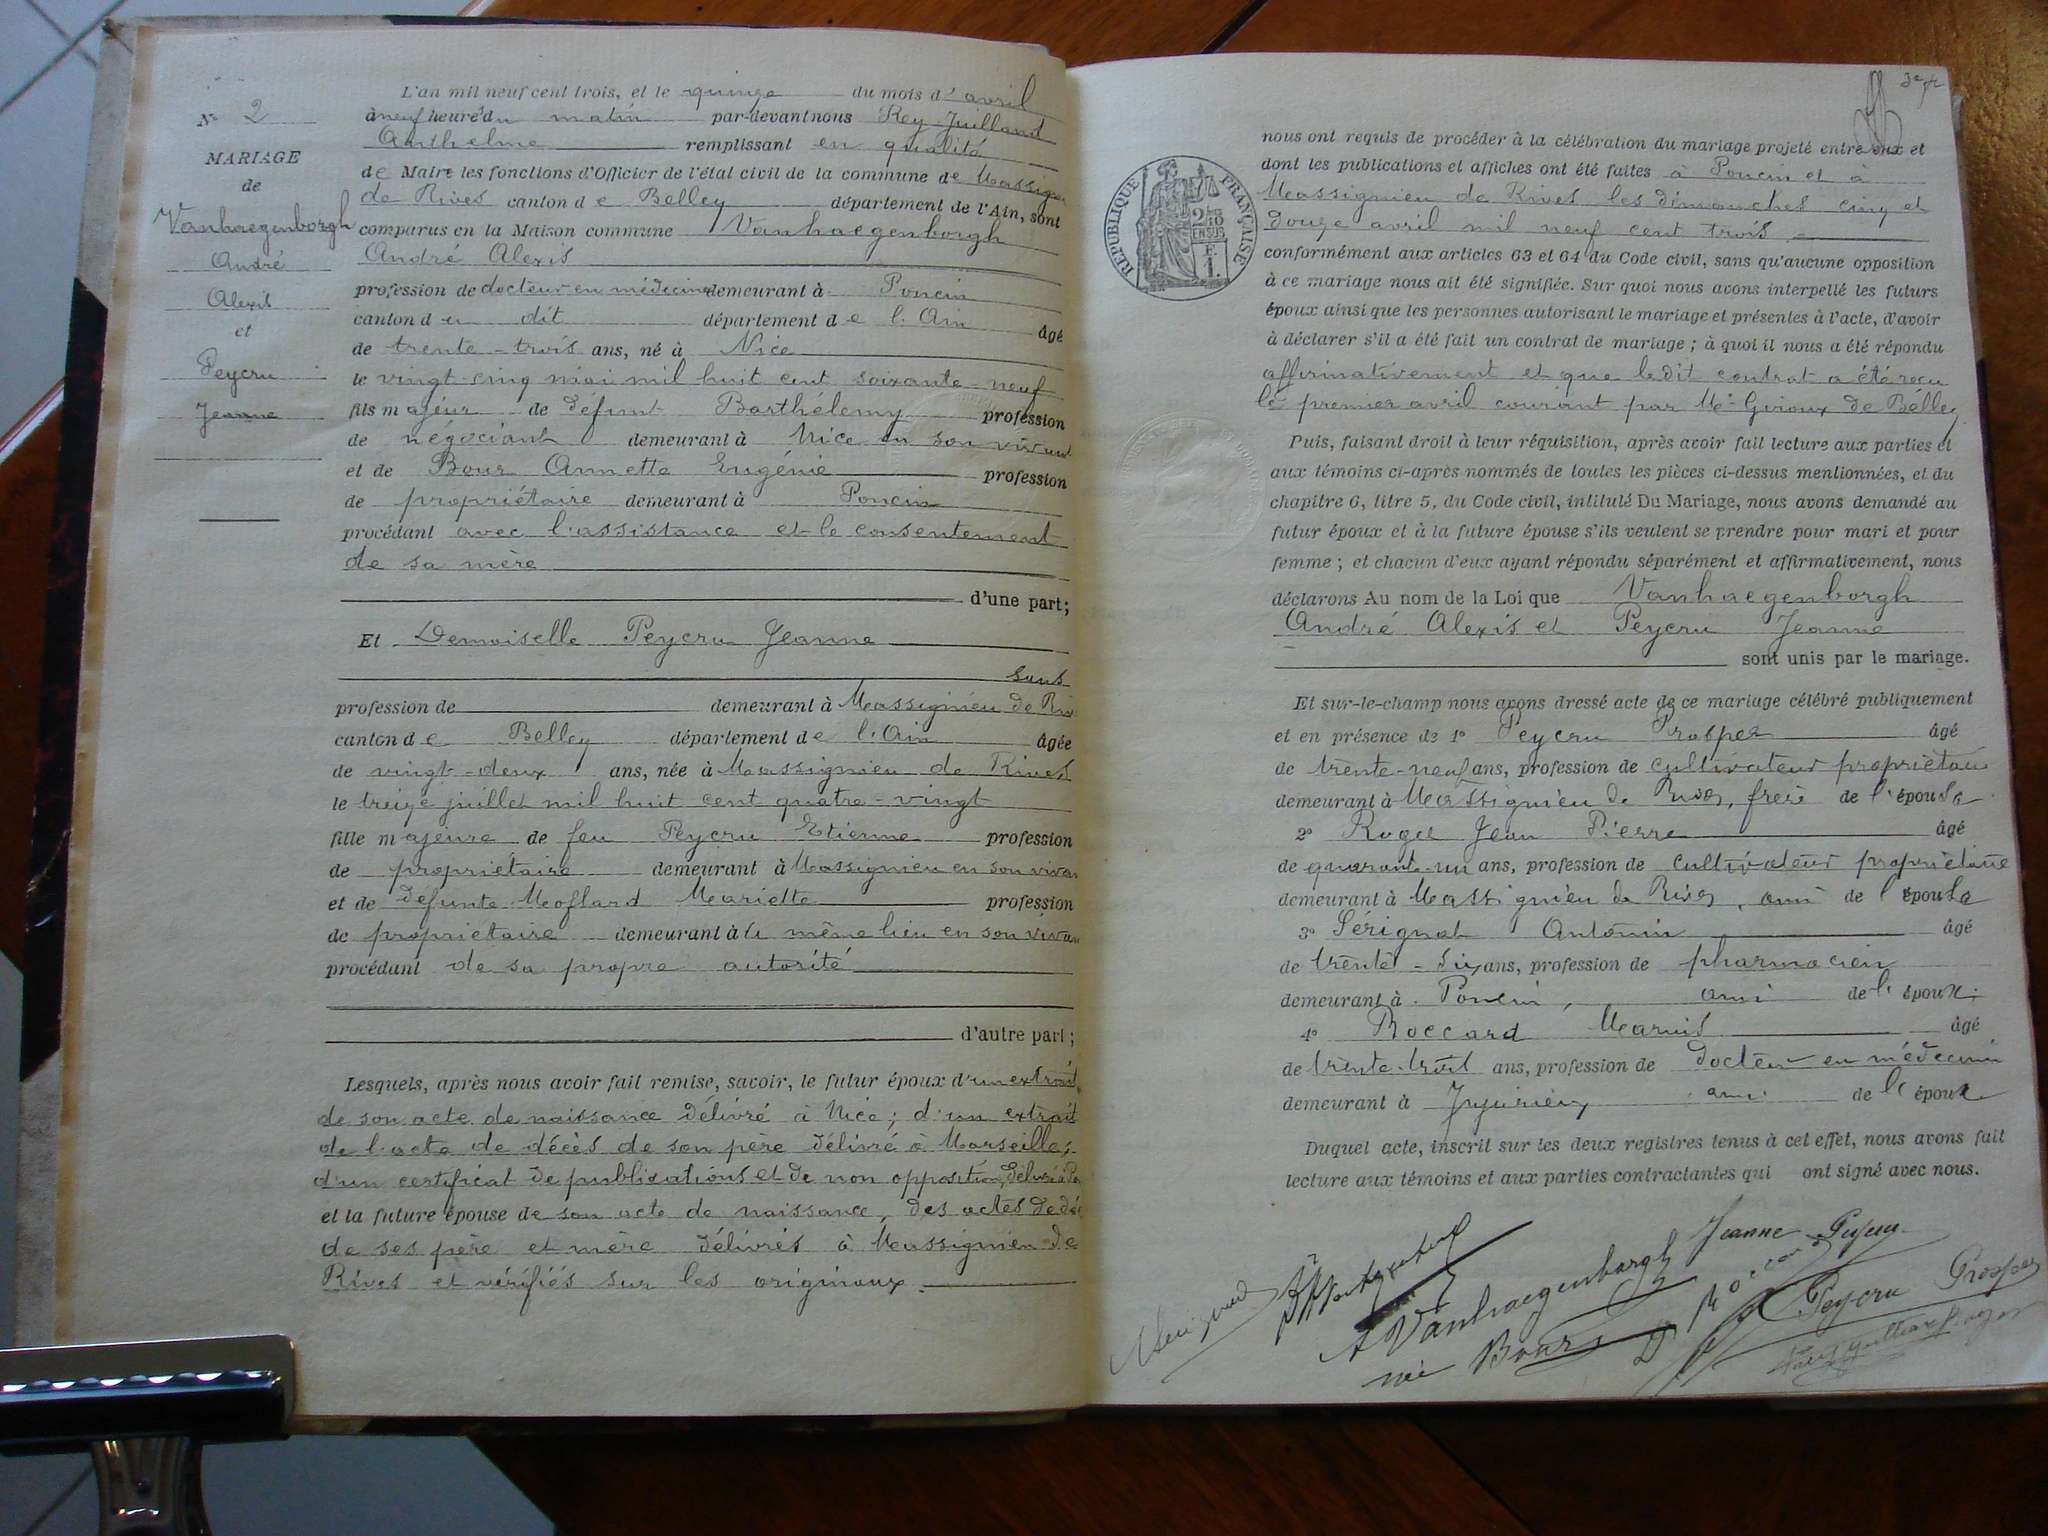 N° 2
MARIAGE
de
Vanhaegenborgh
André
Alexis
et
Peycru
Jeanne
L'an mil neuf cent trois, et le quinze du mois d'avril
à neuf heure du matin par-devant nous Rey-Juilland
Anthelme remplissant en qualité
de Maire les fonctions d'Officier de l'état civil de la commune de Massignieu
de Rives canton de Belley département de l'Ain, sont
comparus en la Maison commune Vanhaegenborgh
André Alexis
profession de docteur en médecine demeurant à Poncin
canton du dit département de l'Ain âgé
de trente-trois ans, né à Nice
le vingt-cinq mai mil huit cent soixante-neuf
fils majeur de défunt Barthélemy profession
de négociant demeurant à Nice en son vivant
et de Bour Annette Eugénie profession
de propriétaire demeurant à Poncin
procédant avec l'assistance et le consentement
de sa mère
d'une part;
Et Demoiselle Peycru Jeanne
sans
profession de demeurant à Massignieu de Riv
canton de Belley département de l'Ain âgée
de vingt-deux ans, née à Massignieu de Rives
le treize juillet mil huit cent quatre-vingt
fille majeure de feu Peycru Etienne profession
de propriétaire demeurant à Massignieu en son vivan
et de défunte Mollard Mariette profession
de propriétaire demeurant à le même lieu en son vivan
procédant de sa propre autorité
d'autre part;
Lesquels, après nous avoir fait remise, savoir, le futur époux d'un extrait
de son acte de naissance délivré à Nice; d'un extrait
de l'acte de décès de son père délivré à Marseille;
d'un certificat de publications et de non opposition, délivré à Po
et la future épouse de son acte de naissance, des actes de dé
de ses père et mère délivrés à Massignieu de
Rives et vérifiés sur les originaux.
nous ont requis de procéder à la célébration du mariage projeté entre eux et
dont les publications et affiches ont été faites à Poncin et à
Massignieu de Rives les dimanches cinq et
douze avril mil neuf cent trois
conformément aux articles 63 et 64 du Code civil, sans qu'aucune opposition
à ce mariage nous ait été signifiée. Sur quoi nous avons interpellé les futurs
époux ainsi que les personnes autorisant le mariage et présentes à l'acte, d'avoir
à déclarer s'il a été fait un contrat de mariage; à quoi il nous a été répondu
affirmativement et que ledit contrat a été reçu
le premier avril courant par Me Giroux de Belley
Puis, faisant droit à leur réquisition, après avoir fait lecture aux parties et
aux témoins ci-après nommés de toutes les pièces ci-dessus mentionnées, et du
chapitre 6, titre 5, du Code civil, intitulé Du Mariage, nous avons demandé au
futur époux et à la future épouse s'ils veulent se prendre pour mari et pour
femme; et chacun d'eux ayant répondu séparément et affirmativement, nous
déclarons Au nom de la Loi que Vanhaegenborgh
André Alexis et Peycru Jeanne
sont unis par le mariage.
Et sur-le-champ nous avons dressé acte de ce mariage célébré publiquement
et en présence de 1° Peycru Prosper âgé
de trente-neuf ans, profession de cultivateur propriétaire
demeurant à Massignieu de Rives, frère de l'épouse
2° Roger Jean Pierre âgé
de quarante-un ans, profession de cultivateur propriétaire
demeurant à Massignieu de Rives, ami de l'épouse
3° Sérignat Antonin âgé
de trente-six ans, profession de pharmacien
demeurant à Poncin, ami de l'époux
4° Boccard Marius âgé
de trente-trois ans, profession de docteur en médecine
demeurant à Jujurieux ami de l'époux
Duquel acte, inscrit sur les deux registres tenus à cet effet, nous avons fait
lecture aux témoins et aux parties contractantes qui ont signé avec nous.
RÉPUBLIQUE FRANÇAISE
Jeanne Peycru
A Vanhaegenborgh
Peycru Prosper
née Bours